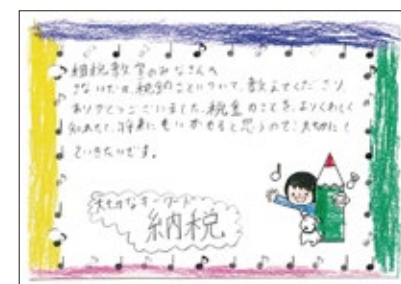 租税教室のみなさんへ
きないだは、税金のことについて、教えてくださり
ありがとうございました。税金のことを、よりくわしく
知れたし、将来にもいかせると思うので、大切にし
ていきたいです。
大切なキーワード
納税